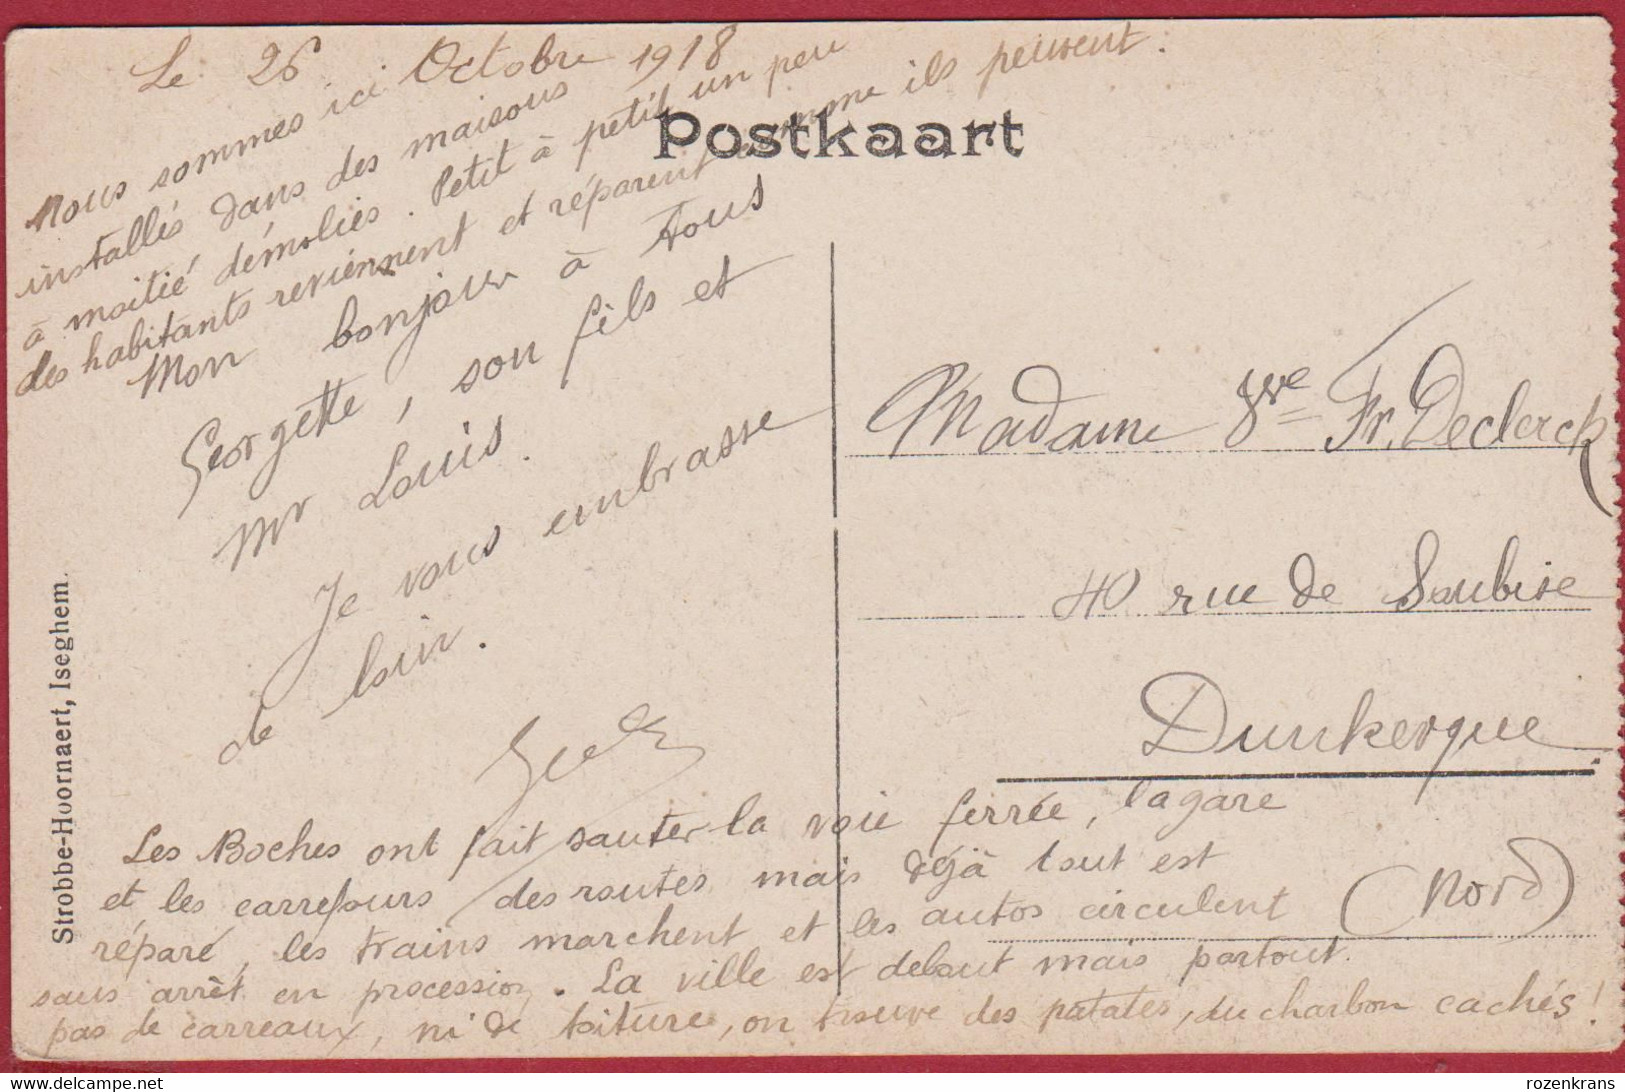 Le 26 Octobre 1918
Nous sommes ici
installés dans des maisons
à moitié démolies. Petit à petit un peu
des habitants reviennent et réparent comme ils peuvent.
Postkaart
Mon bonjour à tous
Georgette, son fils et
Mr Louis.
Je vous embrasse
de loin.
Madame Vve Fr. Declerck
40 rue de Soubise
Dunkerque
(Nord)
Les Boches ont fait sauter la voie ferrée, la gare
et les carrefours des routes mais déjà tout est
réparé, les trains marchent et les autos circulent
sans arrêt en procession. La ville est debout mais partout.
pas de carreaux, ni de toiture, on trouve des patates, du charbon cachés!
Strobbe-Hoornaert, Iseghem.
rozenkrans
delcampe.net